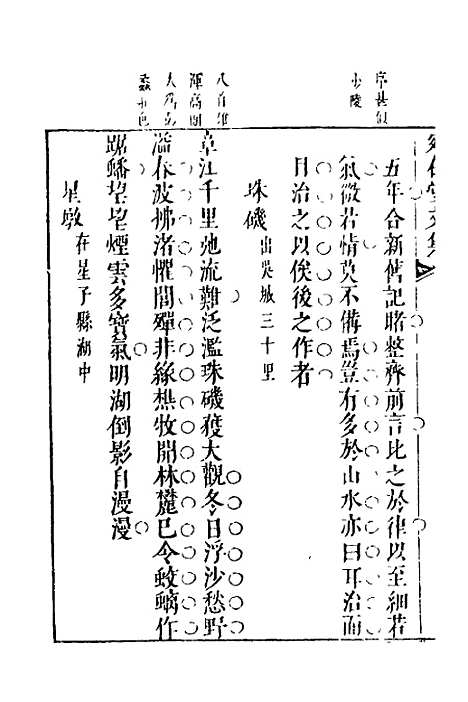 序甚似
少陵
八首雄
渾高朗
五年合新舊記睹整齊前言比之於律以至細若
氣微若情莫不備焉豈有多於山水亦曰耳治面
目治之以俟後之作者
珠磯出吳城三十里
章江千里池流難泛濫珠磯獲大觀冬日浮沙愁野
溢春波拂渚懼閭殫非緣樵牧開林麓已令蛟螭作
踞蟠望望煙雲多寶氣明湖倒影自漫漫
星墩在星子縣湖中